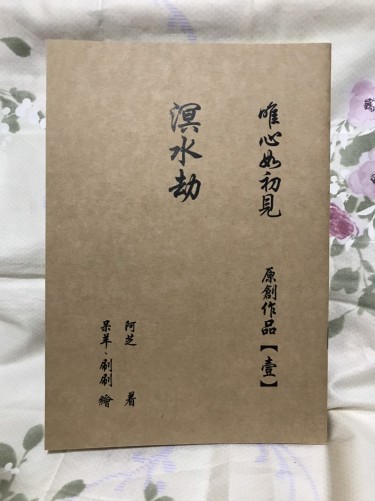 唯心如初見 原創作品【壹】
溟水劫
阿芝 著
呆羊、刷刷 繪